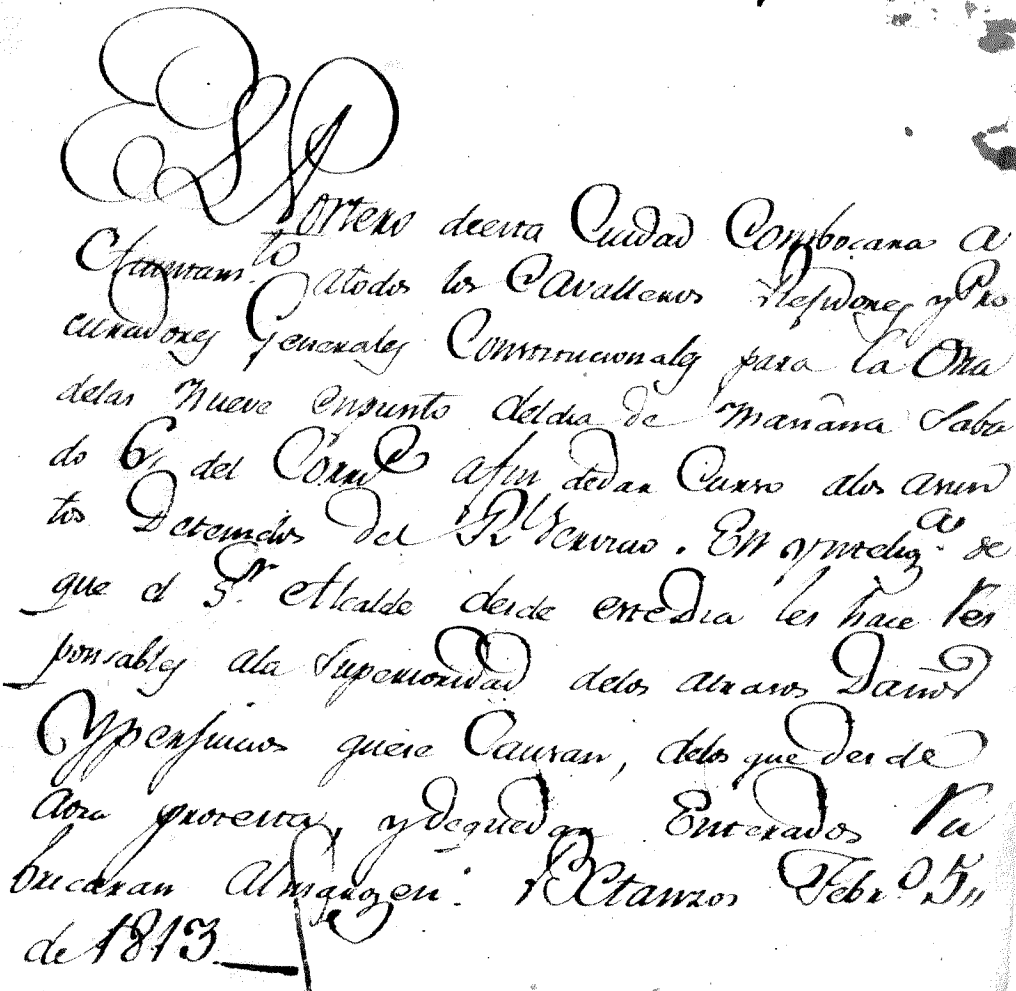 El Portero deesta Ciudad Combocara a
Ayuntam.to atodos los Cavalleros Residores y Pro
curadores Generales Constitucionales para la Ora
delas Nueve enpunto deldia de Mañana Saba
do 6,, del Corr.te afin dedar Curso alos asun
tos Detenidos del R.l Servicio. En yntelig.a de
que el S.r Alcalde desde estedia les hace res
ponsables ala Superioridad delos atrasos Daños
Yperjuicios quese Causan, delos que desde
aora protesta, y dequedar Enterados ru
bricaran almargen. Betanzos Febr.o 5,,
de 1813